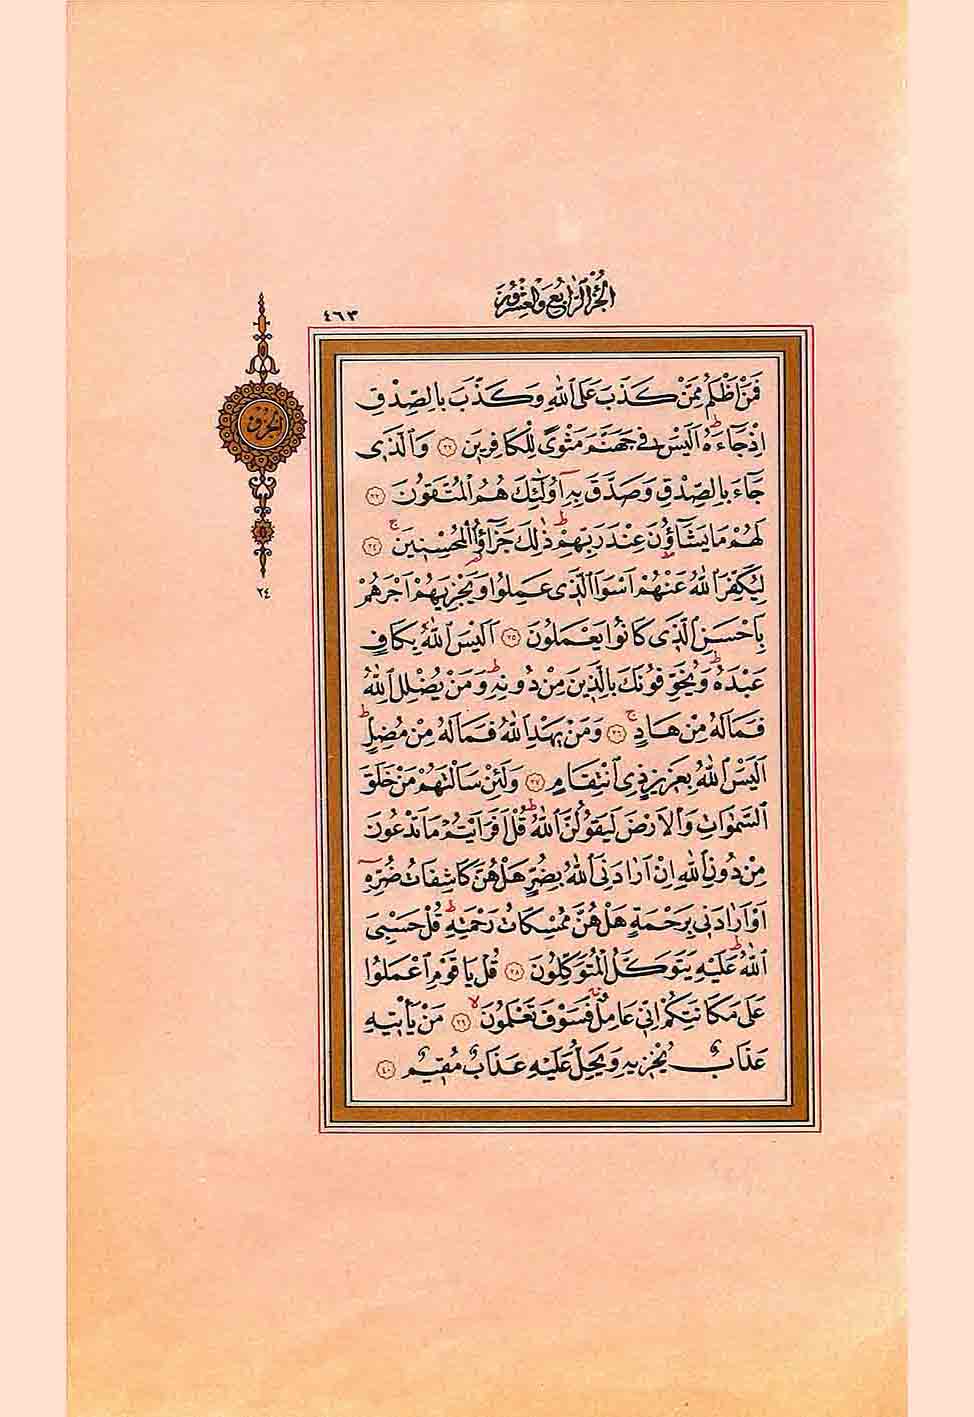 الجزء الرابع والعشرون
٤٦٣
الجزء
٢٤
فَمَنْ اَظْلَمُ مِمَّنْ كَذَبَ عَلَى اللّٰهِ وَكَذَّبَ بِالصِّدْقِ
اِذْ جَٓاءَهُۜ اَلَيْسَ فٖي جَهَنَّمَ مَثْوًى لِلْكَافِرٖينَ ٣٢ وَالَّذٖي
جَٓاءَ بِالصِّدْقِ وَصَدَّقَ بِهٖٓ اُو۬لٰٓئِكَ هُمُ الْمُتَّقُونَ ٣٣
لَهُمْ مَا يَشَٓاؤُ۫نَ عِنْدَ رَبِّهِمْۜ ذٰلِكَ جَزٰٓؤُا الْمُحْسِنٖينَۚ ٣٤
لِيُكَفِّرَ اللّٰهُ عَنْهُمْ اَسْوَاَ الَّذٖي عَمِلُوا وَيَجْزِيَهُمْ اَجْرَهُمْ
بِاَحْسَنِ الَّذٖي كَانُوا يَعْمَلُونَ ٣٥ اَلَيْسَ اللّٰهُ بِكَافٍ
عَبْدَهُۜ وَيُخَوِّفُونَكَ بِالَّذٖينَ مِنْ دُونِهٖۜ وَمَنْ يُضْلِلِ اللّٰهُ
فَمَا لَهُ مِنْ هَادٍۚ ٣٦ وَمَنْ يَهْدِ اللّٰهُ فَمَا لَهُ مِنْ مُضِلٍّۜ
اَلَيْسَ اللّٰهُ بِعَزٖيزٍ ذِي انْتِقَامٍ ٣٧ وَلَئِنْ سَاَلْتَهُمْ مَنْ خَلَقَ
السَّمٰوَاتِ وَالْاَرْضَ لَيَقُولُنَّ اللّٰهُۜ قُلْ اَفَرَاَيْتُمْ مَا تَدْعُونَ
مِنْ دُونِ اللّٰهِ اِنْ اَرَادَنِيَ اللّٰهُ بِضُرٍّ هَلْ هُنَّ كَاشِفَاتُ ضُرِّهٖٓ
اَوْ اَرَادَنٖي بِرَحْمَةٍ هَلْ هُنَّ مُمْسِكَاتُ رَحْمَتِهٖۜ قُلْ حَسْبِيَ
اللّٰهُۜ عَلَيْهِ يَتَوَكَّلُ الْمُتَوَكِّلُونَ ٣٨ قُلْ يَا قَوْمِ اعْمَلُوا
عَلٰى مَكَانَتِكُمْ اِنّٖي عَامِلٌۚ فَسَوْفَ تَعْلَمُونَۙ ٣٩ مَنْ يَأْتٖيهِ
عَذَابٌ يُخْزٖيهِ وَيَحِلُّ عَلَيْهِ عَذَابٌ مُقٖيمٌ ٤٠